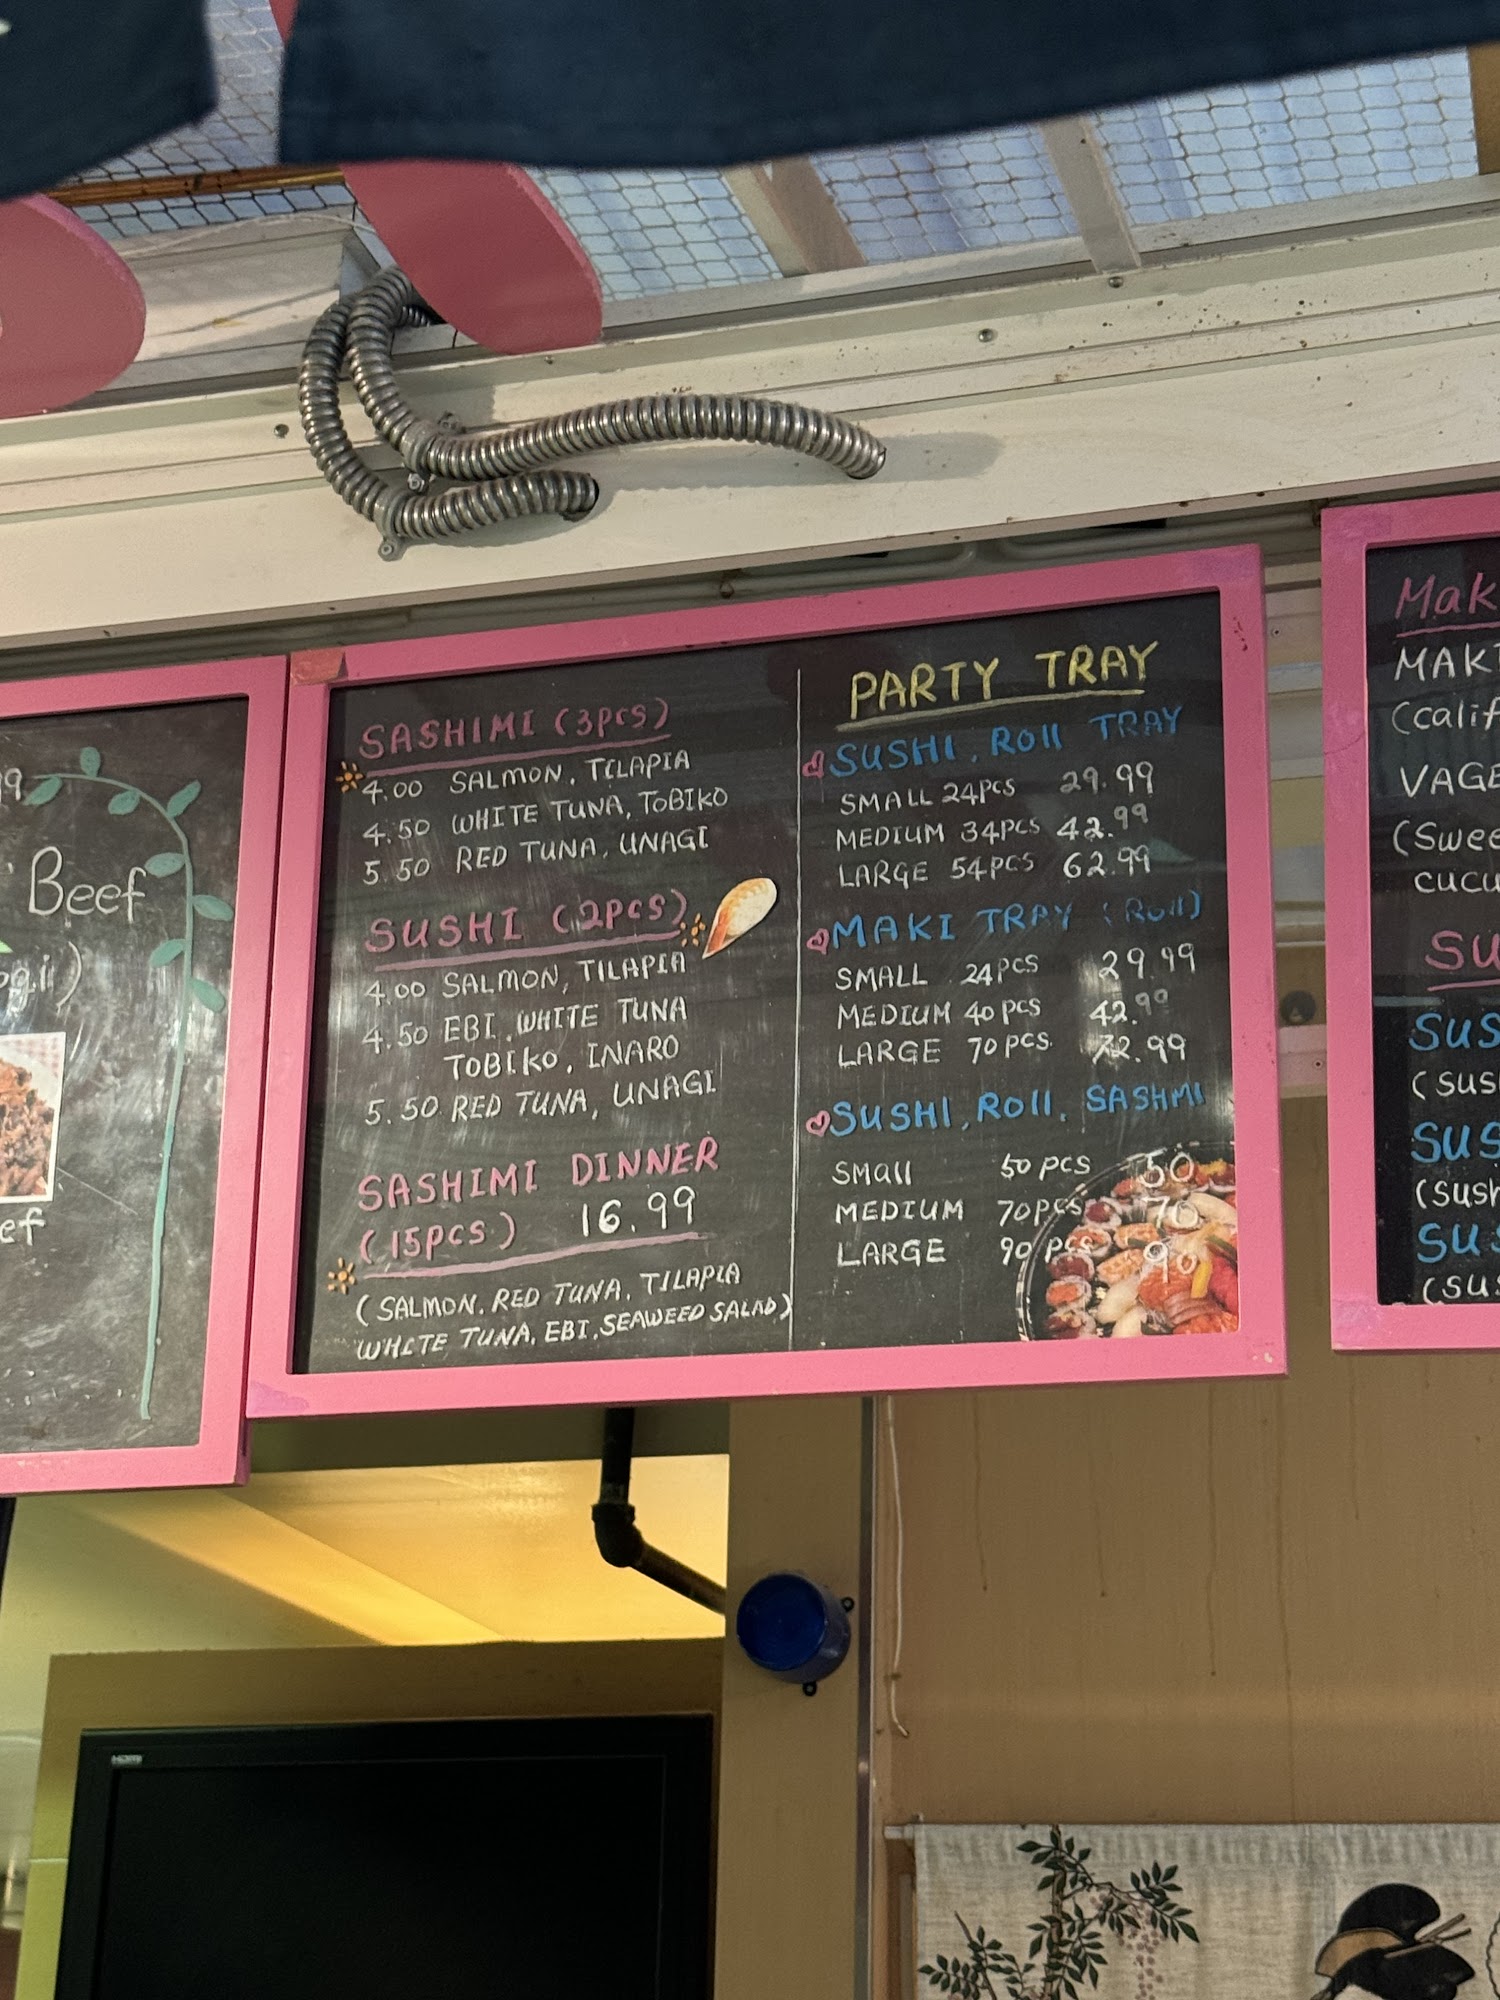 Beef
SASHIMI (3PCS)
4.00 SALMON, TILAPIA
4.50 WHITE TUNA, TOBIKO
5.50 RED TUNA, UNAGI
SUSHI (2PCS)
4.00 SALMON, TILAPIA
4.50 EBI, WHITE TUNA
TOBIKO, INARO
5.50 RED TUNA, UNAGI
SASHIMI DINNER
(15PCS) 16.99
(SALMON, RED TUNA, TILAPIA
WHITE TUNA, EBI, SEAWEED SALAD)
PARTY TRAY
SUSHI, Roll TRAY
SMALL 24PCS 29.99
MEDIUM 34PCS 42.99
LARGE 54PCS 62.99
MAKI TRAY (Roll)
SMALL 24PCS 29.99
MEDIUM 40PCS 42.99
LARGE 70PCS. 72.99
SUSHI, Roll, SASHMI
SMAll 50PCS 50
MEDIUM 70PCS 70
LARGE 90PCS 90
HDMI